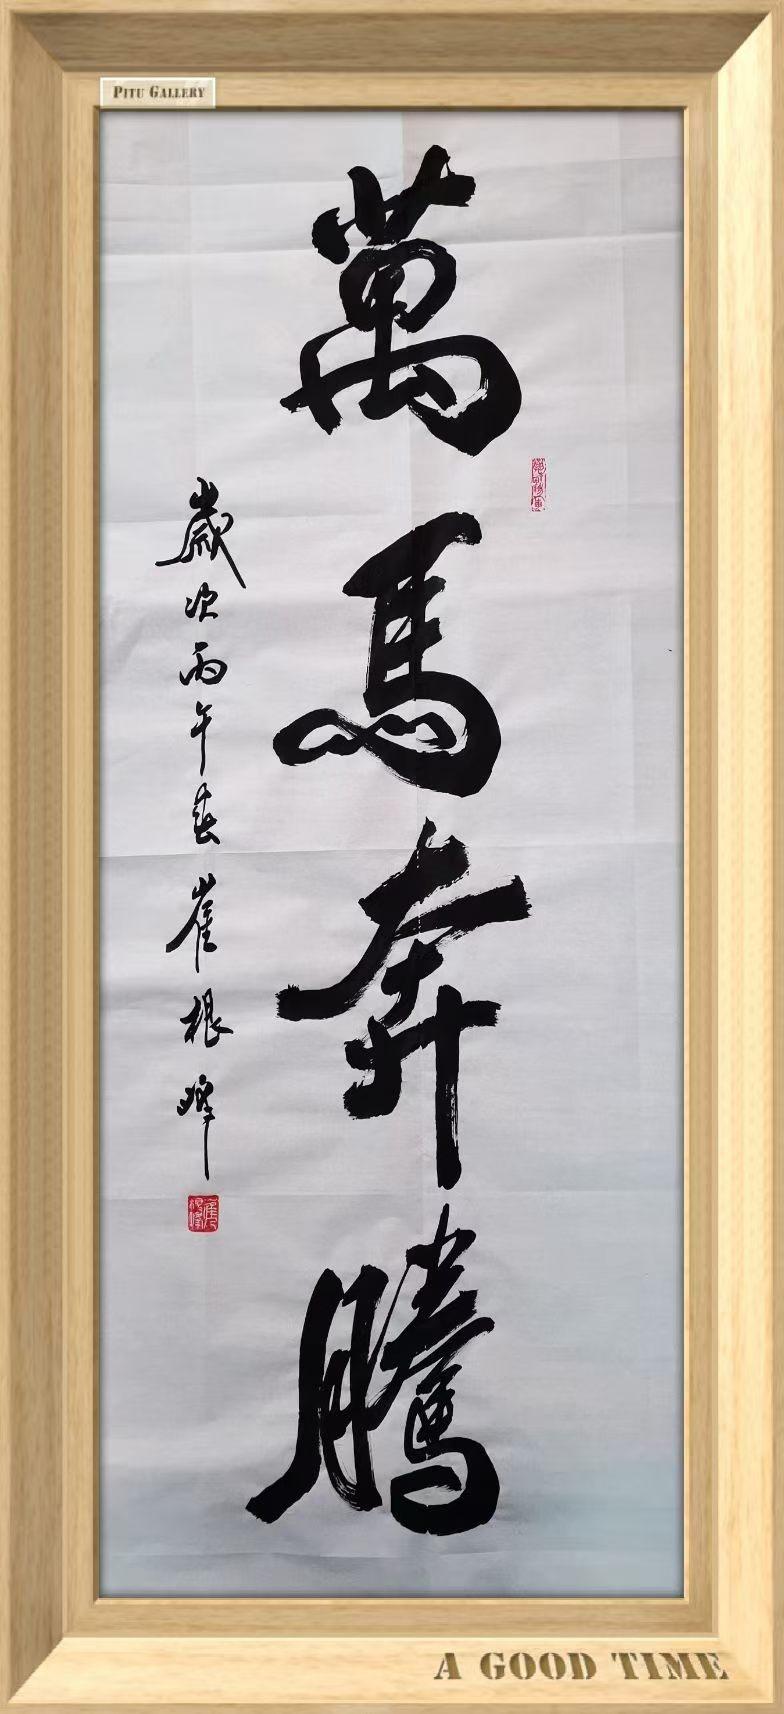 PITU GALLERY
萬馬奔騰
歲次丙午春崔根峰
A GOOD TIME